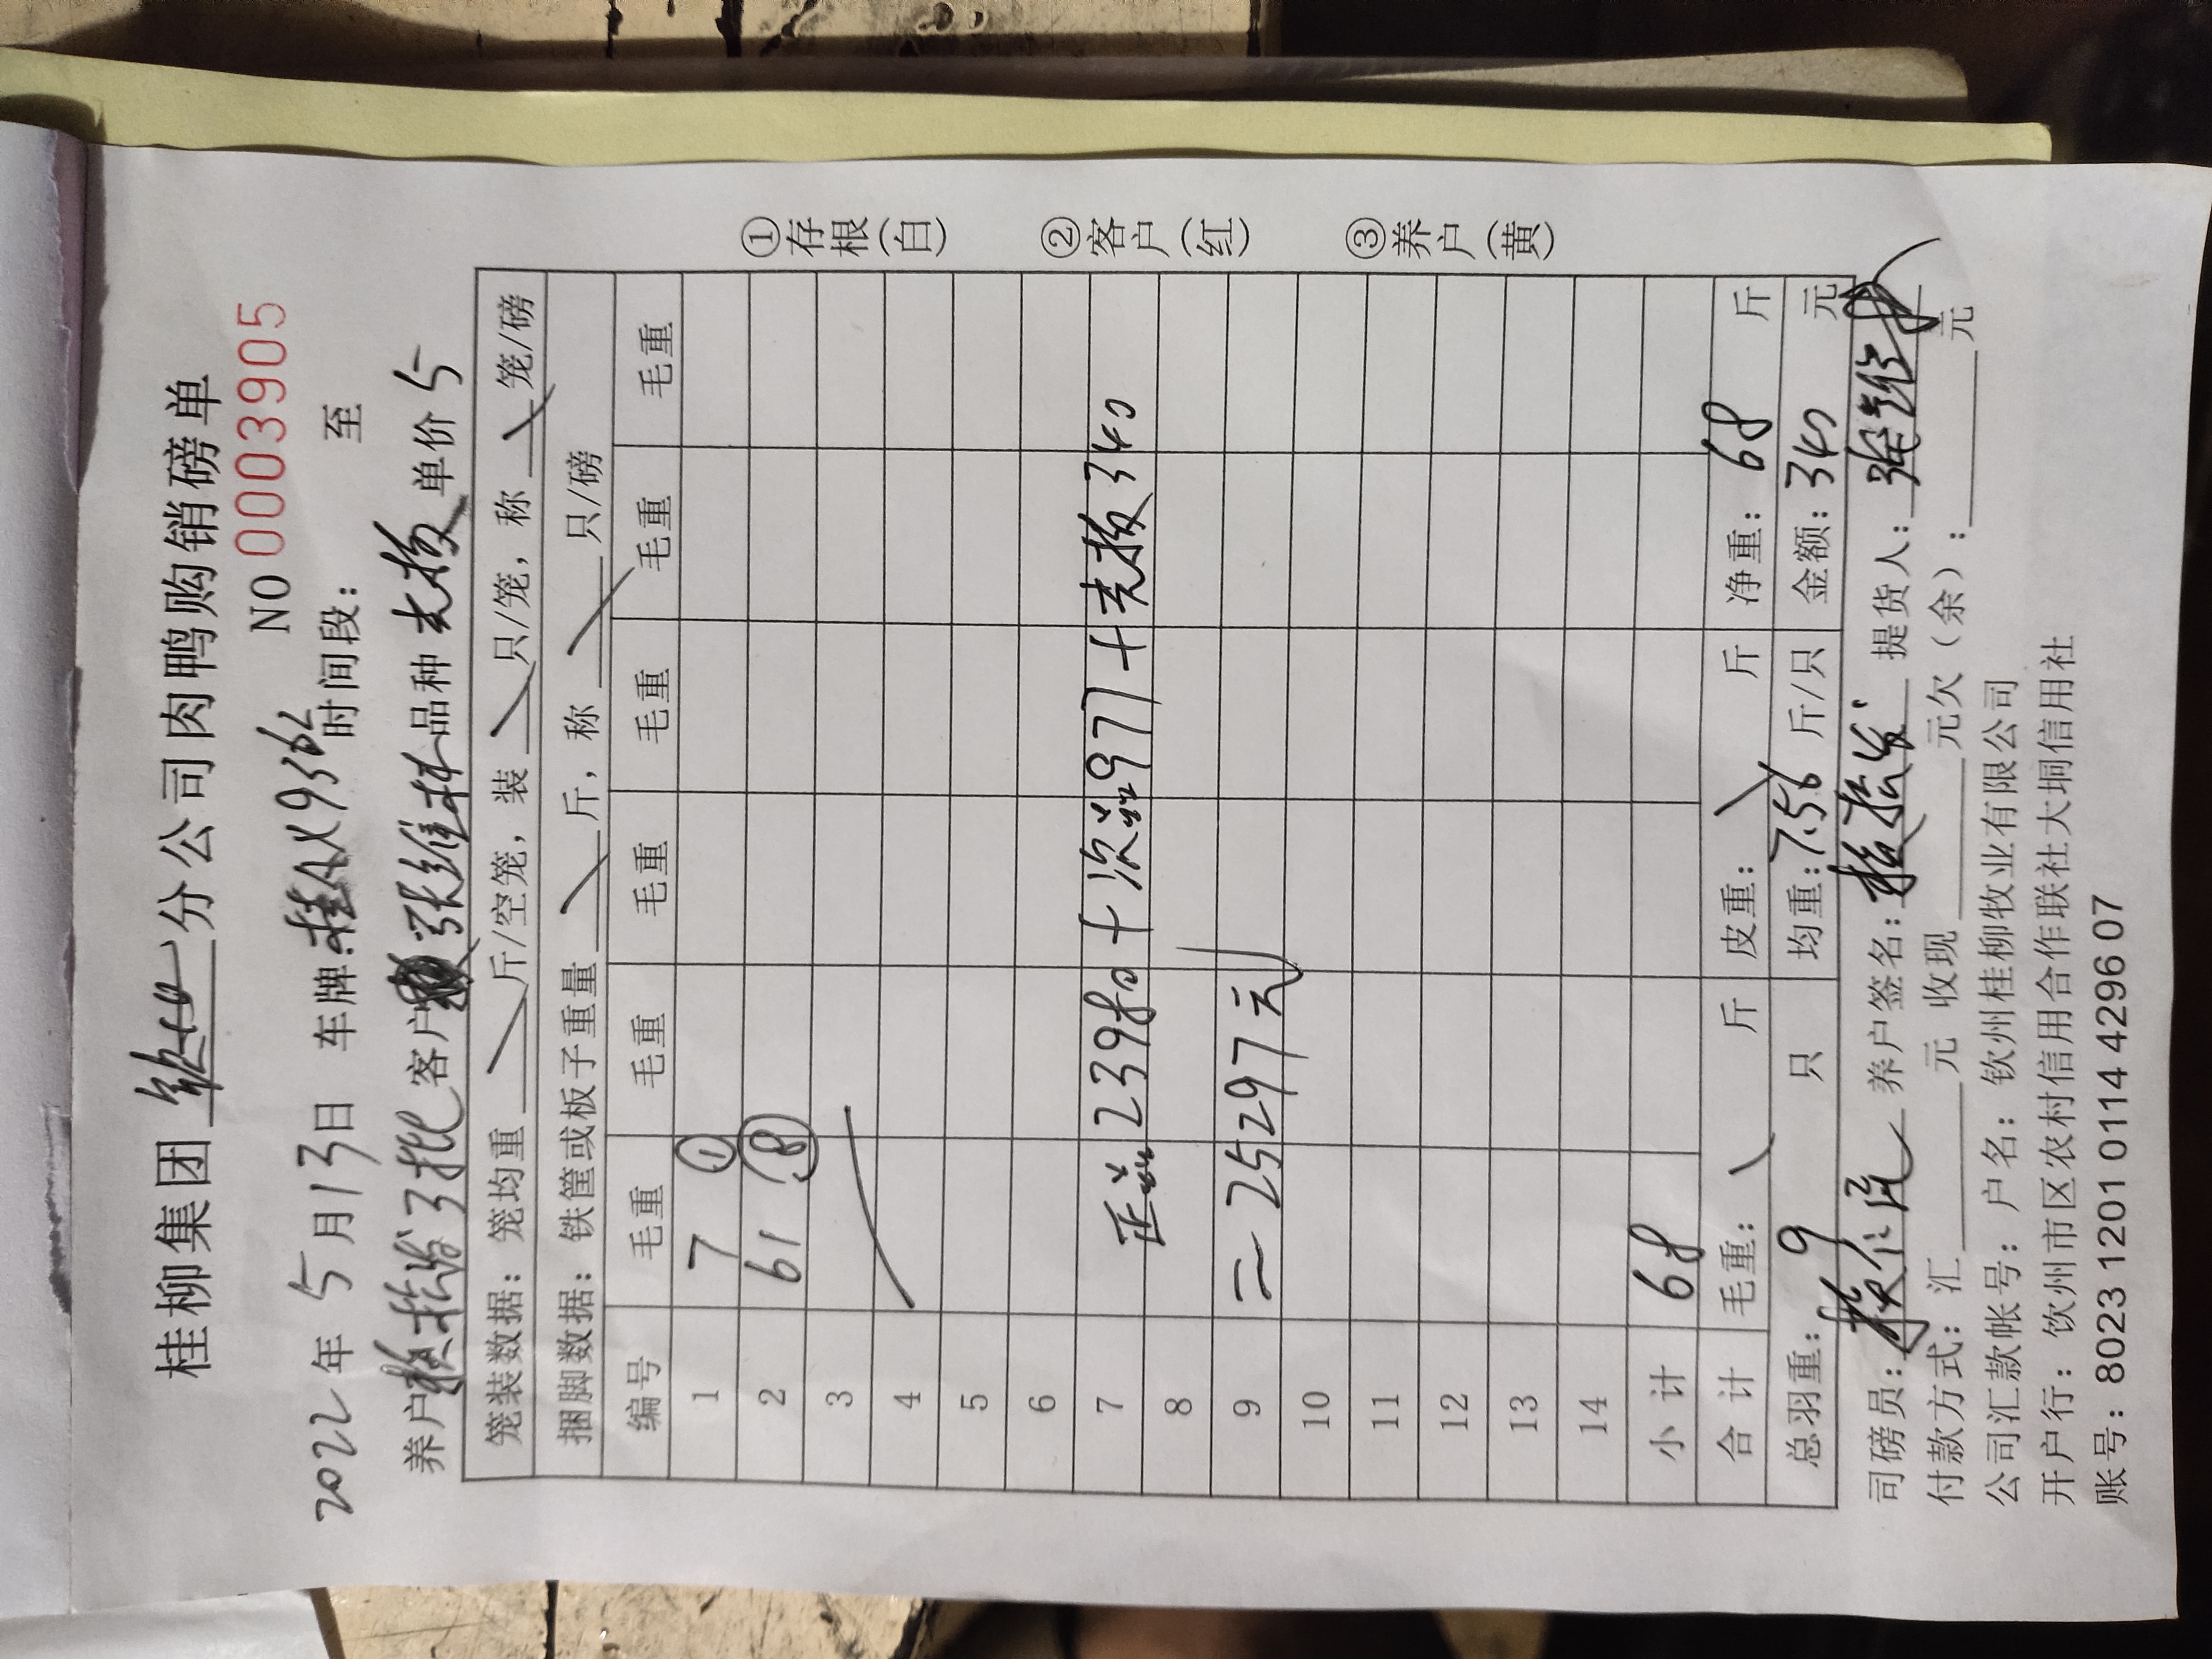 桂柳集团 分公司肉鸭购销磅单
NO 0003905
2022年 5月13日 车牌:桂AX9362 时间段: 至
养户 3批 客户 张维林 品种 单价 5
笼装数据: 笼均重 斤/空笼, 装 只/笼, 称 笼/磅
捆脚数据: 铁筐或板子重量 斤, 称 只/磅
编号 毛重 毛重 毛重 毛重 毛重 毛重
1 7 ①
2 61 ⑧
3
4
5
6
7 正品23980+次品977+ 340
8
9 =25297元
10
11
12
13
14
小计 68
合计 毛重: 斤 皮重: 斤 净重: 68 斤
总羽重: 9 只 均重: 7.56 斤/只 金额: 340 元
司磅员: 养户签名: 提货人:
付款方式: 汇 元 收现 元欠(余): 元
公司汇款帐号: 户名: 钦州桂柳牧业有限公司
开户行: 钦州市区农村信用合作联社大垌信用社
账号: 8023 1201 0114 4296 07
①存根(白)
②客户(红)
③养户(黄)